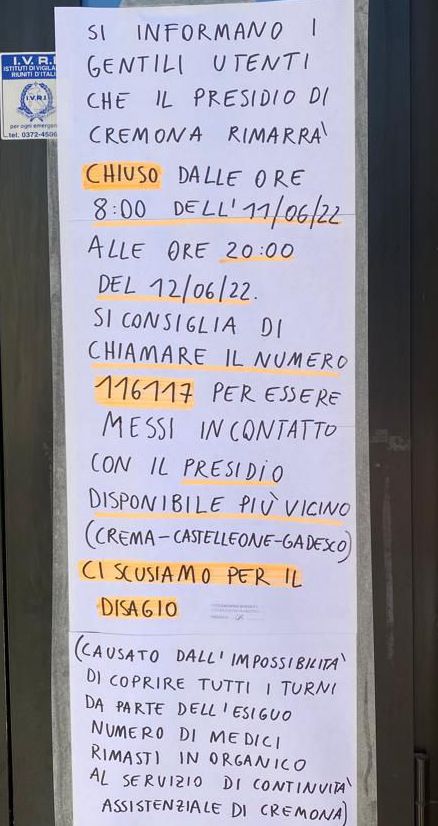 I.V.R.I.
ISTITUTI DI VIGILAN
RIUNITI D'ITALI
I.V.R.I.
per ogni emergen
tel. 0372-4506
SI INFORMANO I
GENTILI UTENTI
CHE IL PRESIDIO DI
CREMONA RIMARRA'
CHIUSO DALLE ORE
8:00 DELL'11/06/22
ALLE ORE 20:00
DEL 12/06/22.
SI CONSIGLIA DI
CHIAMARE IL NUMERO
116117 PER ESSERE
MESSI IN CONTATTO
CON IL PRESIDIO
DISPONIBILE PIÙ VICINO
(CREMA-CASTELLEONE-GADESCO)
CI SCUSIAMO PER IL
DISAGIO
(CAUSATO DALL'IMPOSSIBILITA'
DI COPRIRE TUTTI I TURNI
DA PARTE DELL'ESIGUO
NUMERO DI MEDICI
RIMASTI IN ORGANICO
AL SERVIZIO DI CONTINUITA'
ASSISTENZIALE DI CREMONA)